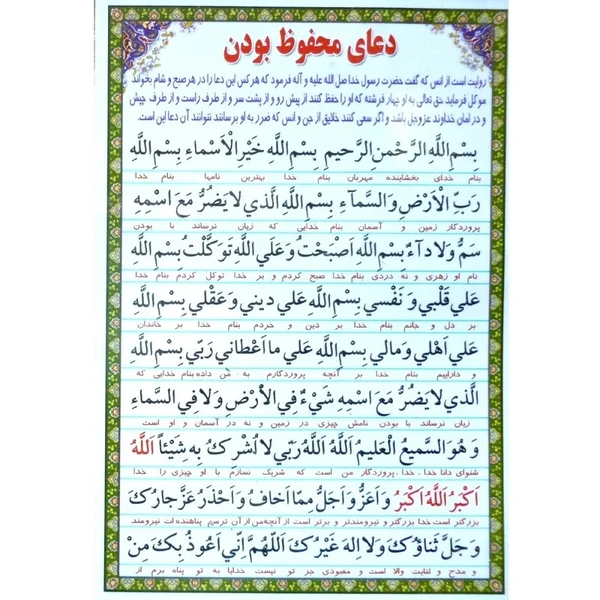 دعای محفوظ بودن
روایت است از انس که گفت حضرت رسول خدا صل الله علیه و آله فرمود که هر کس این دعا را در هر صبح و شام بخواند
موکل فرماید حق تعالی به او چهار فرشته که او را حفظ کنند از پیش رو و از پشت سر و از طرف راست و از طرف چپش
و در امان خداوند عزوجل باشد و اگر سعی کنند خلایق از جن و انس که ضرر به او برسانند نتوانند آن دعا این است.
بِسْمِ اللَّهِ الرَّحْمنِ الرَّحيمِ بِسْمِ اللَّهِ خَيْرِ الْاَسْماءِ بِسْمِ اللَّهِ
بنام خدای بخشاینده مهربان بنام خدا بهترین نامها بنام خدا
رَبِّ الْاَرْضِ وَالسَّمآءِ بِسْمِ اللَّهِ الَّذي لا يَضُرُّ مَعَ اسْمِهِ
پروردگار زمین و آسمان بنام خدایی که زیان نرساند با بودن
سَمٌّ وَلا دآءٌ بِسْمِ اللَّهِ اَصْبَحْتُ وَعَلَي اللَّهِ تَوَكَّلْتُ بِسْمِ اللَّهِ
نام او زهری و نه دردی بنام خدا صبح کردم و بر خدا توکل کردم بنام خدا
عَلي قَلْبي وَ نَفْسي بِسْمِ اللَّهِ عَلي ديني وَ عَقْلي بِسْمِ اللَّهِ
بر دل و جانم بنام خدا بر دین و خردم بنام خدا بر خاندان
عَلي اَهْلي وَ مالي بِسْمِ اللَّهِ عَلي ما اَعْطاني رَبّي بِسْمِ اللَّهِ
و داراییم بنام خدا بر آنچه پروردگارم به من داده بنام خدایی که
الَّذي لا يَضُرُّ مَعَ اسْمِهِ شَيْءٌ فِي الْاَرْضِ وَلا فِي السَّماءِ
زیان نرساند با بودن نامش چیزی در زمین و نه در آسمان و او است
وَ هُوَ السَّميعُ الْعَليمُ اَللَّهُ اَللَّهُ رَبّي لا اُشْرِكُ بِهِ شَيْئاً اَللَّهُ
شنوای دانا خدا، خدا، پروردگار من است که شریک نسازم با او چیزی را خدا
اَكْبَرُ اَللَّهُ اَكْبَرُ وَ اَعَزُّ وَ اَجَلُّ مِمّا اَخافُ وَ اَحْذَرُ عَزَّ جارُكَ
بزرگتر است خدا بزرگتر و نیرومندتر و برتر است از آنچه من از آن ترسم پناهنده ات نیرومند
وَ جَلَّ ثَناؤُكَ وَلا اِلهَ غَيْرُكَ اَللَّهُمَّ اِنّي اَعُوذُ بِكَ مِنْ
و مدح و ثنایت والا است و معبودی جز تو نیست خدایا به تو پناه برم از